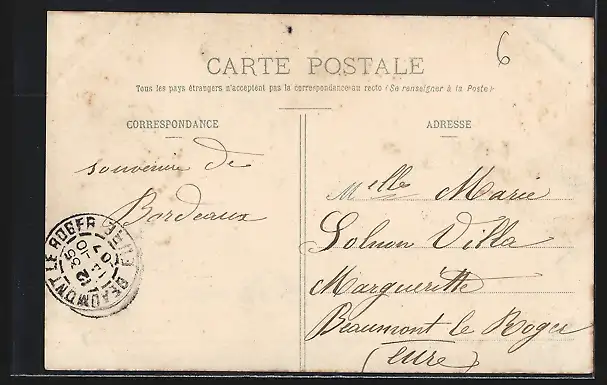 6
CARTE POSTALE
Tous les pays étrangers n'acceptent pas la correspondance au recto (Se renseigner à la Poste)
CORRESPONDANCE
souvenir de
Bordeaux
BEAUMONT LE ROGER EURE
ADRESSE
Melle Marie
Solnon Villa
Marguerite
Beaumont le Roger
(Eure)